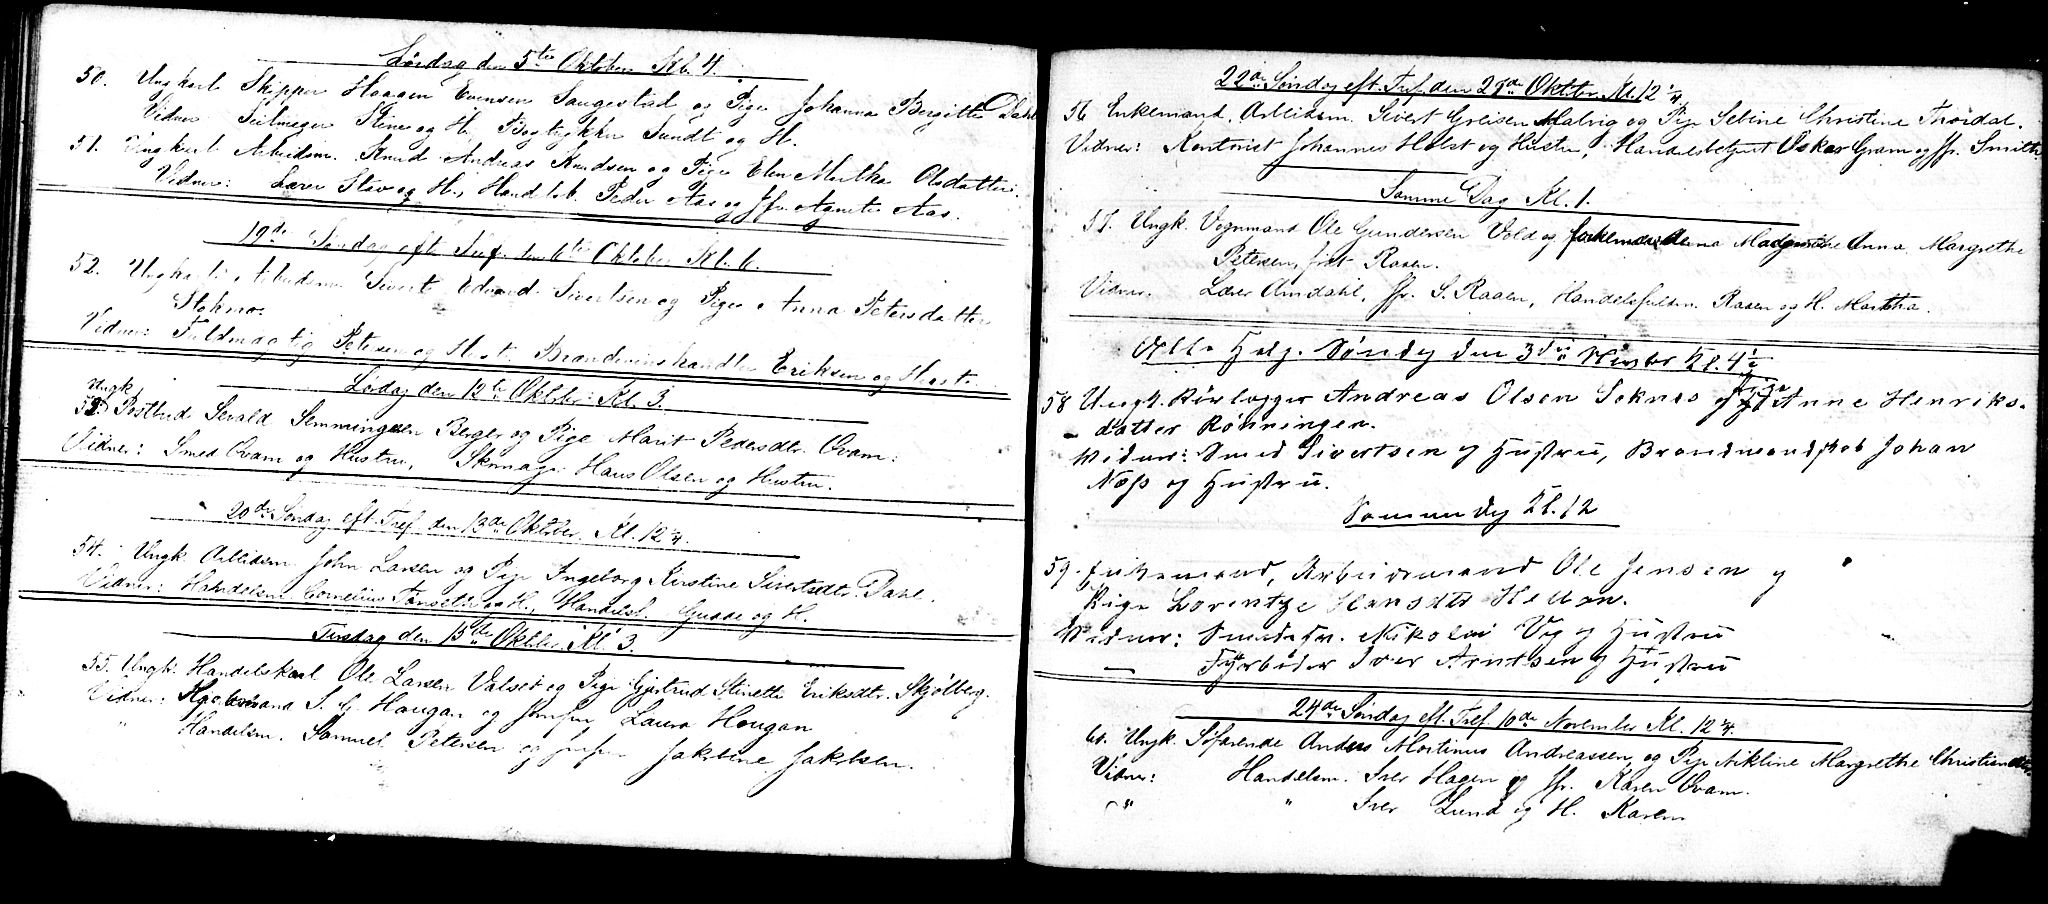 Lördag den 5te Oktober Kl. 4.
50. Ungkarl Skipper Haagen Evensen Saugestad og Pige Johanna Bergitte Dahl
Vidner Seilmager Stine og H. Bogtrykker Sundt og H.
51. Ungkarl Arbeidsm. Knud Andreas Knudsen og Pige Elen Martha Olsdatter.
Vidner: Lærer Stav og H., Handelsb. Peder Aas og Jfr. Agnete Aas.
19de Søndag efter Tref. den 6te Oktober Kl. 6.
52. Ungkarl, Arbeidsm. Sivert Edvard Sivertsen og Pige Anna Petersdatter
Stokmo.
Vidner: Fuldmægtig Petersen og Hustr. Brændevinshandler Eriksen og Hustr.
Lødag den 12te Oktober Kl. 3.
Ungk.
53. Postbud Sevald Semmingsen Berger og Pige Marit Pedersdtr. Qvam.
Vidner: Smed Qvam og Hustru, Skomager Hans Olsen og Hustru.
20de Søndag eft. Tref. den 13de Oktober Kl. 12 1/4.
54. Ungk. Arbeidsm. John Larsen og Pige Ingeborg Kirstine Sivertsdtr. Dahl.
Vidner: Handelsm. Cornelius Tønseth og H., Handelsf. Gusse og H.
Tirsdag den 15de Oktober Kl. 3.
55. Ungk. Handelskarl Ole Larsen Valset og Pige Gjertrud Stinette Eriksdtr. Skjølberg.
Vidner: Kjøbmand S. C. Hougan og Jomfru Laura Hougan
" Handelsm. Samuel Petersen og Jomfru Jakobine Jakobsen.
22de Søndag eft. Tref. den 27de Oktober Kl. 12 1/4
56 Enkemand, Arbeidsm. Sivert Greisen Malvig og Pige Sebine Christine Thordal.
Vidner: Kontorist Johannes Holst og Hustru, Handelsbetjent Oskar Gram og Jfr. Smith
Samme Dag Kl. 1.
57. Ungk. Vognmand Ole Gundersen Vold og Anna Margrethe
Petersen, født Raaen.
Vidner. Lærer Amdahl, Jfr. S. Raaen, Handelsfuldm. Raaen og H. Martha.
Alle Helg. Søndag den 3die Novbr Kl. 4 1/2
58 Ungk. Rørlægger Andreas Olsen Soknes og Pige Anne Henriks-
datter Rønningen.
Vidner: Smed Sivertsen og Hustru, Brandmandskab Johan
Næss og Hustru.
Samme Dag Kl. 12
59. Enkemand, Arbeidsmand Ole Jensen og
Pige Lorentze Hansdtr Hellan.
Vidner: Smedsv. Nikolai Vig og Hustru
Fyrbøder Iver Arntsen og Hustru
24de Søndag eft. Tref. 10de November Kl. 12 1/4.
60. Ungk. Søfarende Anders Martinus Andreassen, og Pige Nikline Margrethe Christiansdtr.
Vidner: Handelsm. Iver Hagen og Jfr. Karen Qvam.
" " Iver Lund og H. Karen